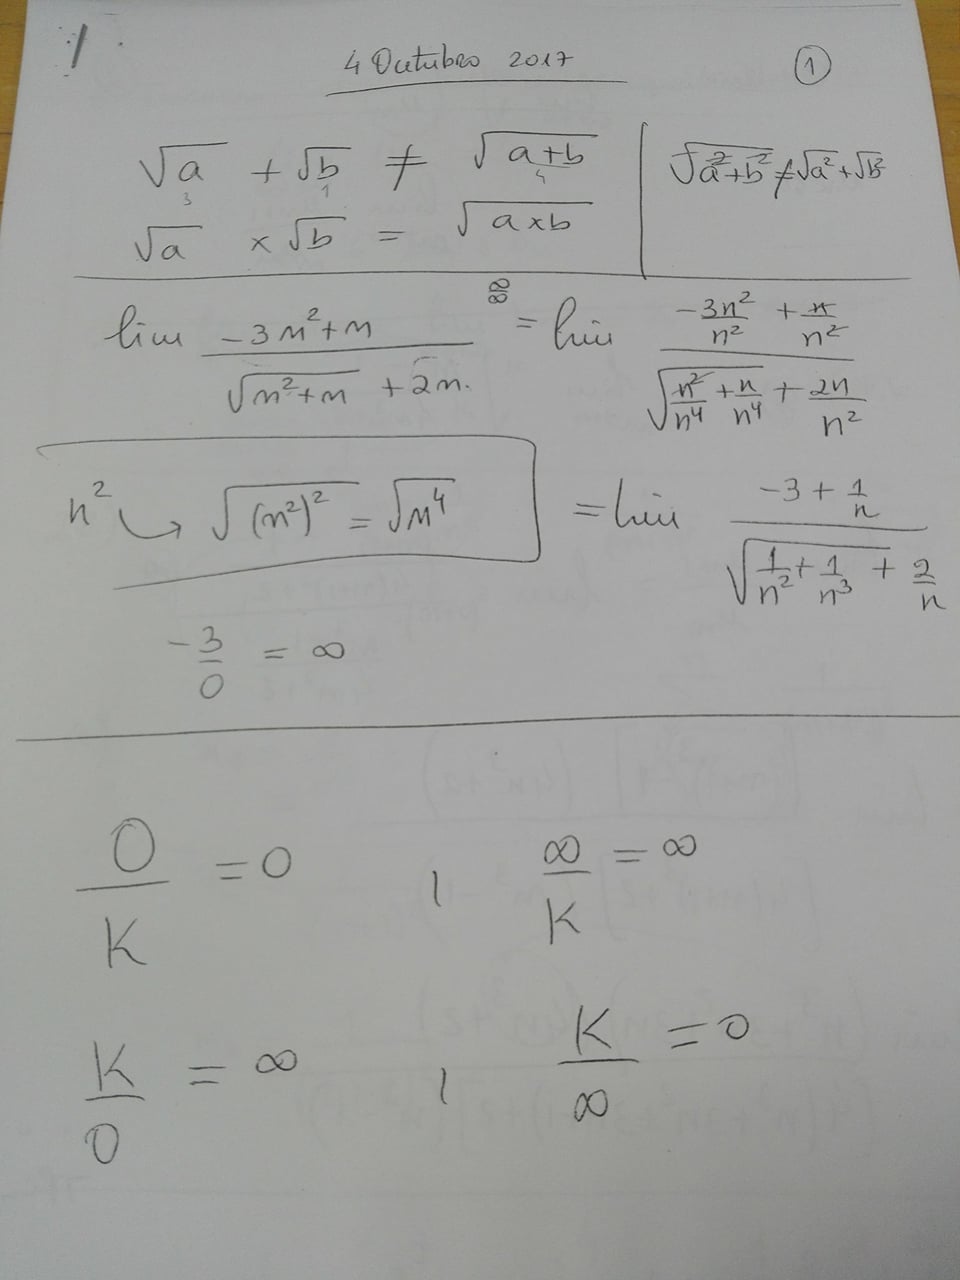 4 Outubro 2017 ①
√a + √b ≠ √(a+b)
3 1 4
√a × √b = √(a×b)
√(a²+b²) ≠ √a² + √b²
lim (-3n²+n)/(√(n²+n) + 2n) ∞/∞ = lim (-3n²/n² + n/n²)/(√(n²/n⁴ + n/n⁴) + 2n/n²)
n² ↪ √((n²)²) = √n⁴
= lim (-3 + 1/n)/(√(1/n² + 1/n³) + 2/n)
-3/0 = ∞
0/K = 0 , ∞/K = ∞
K/0 = ∞ , K/∞ = 0